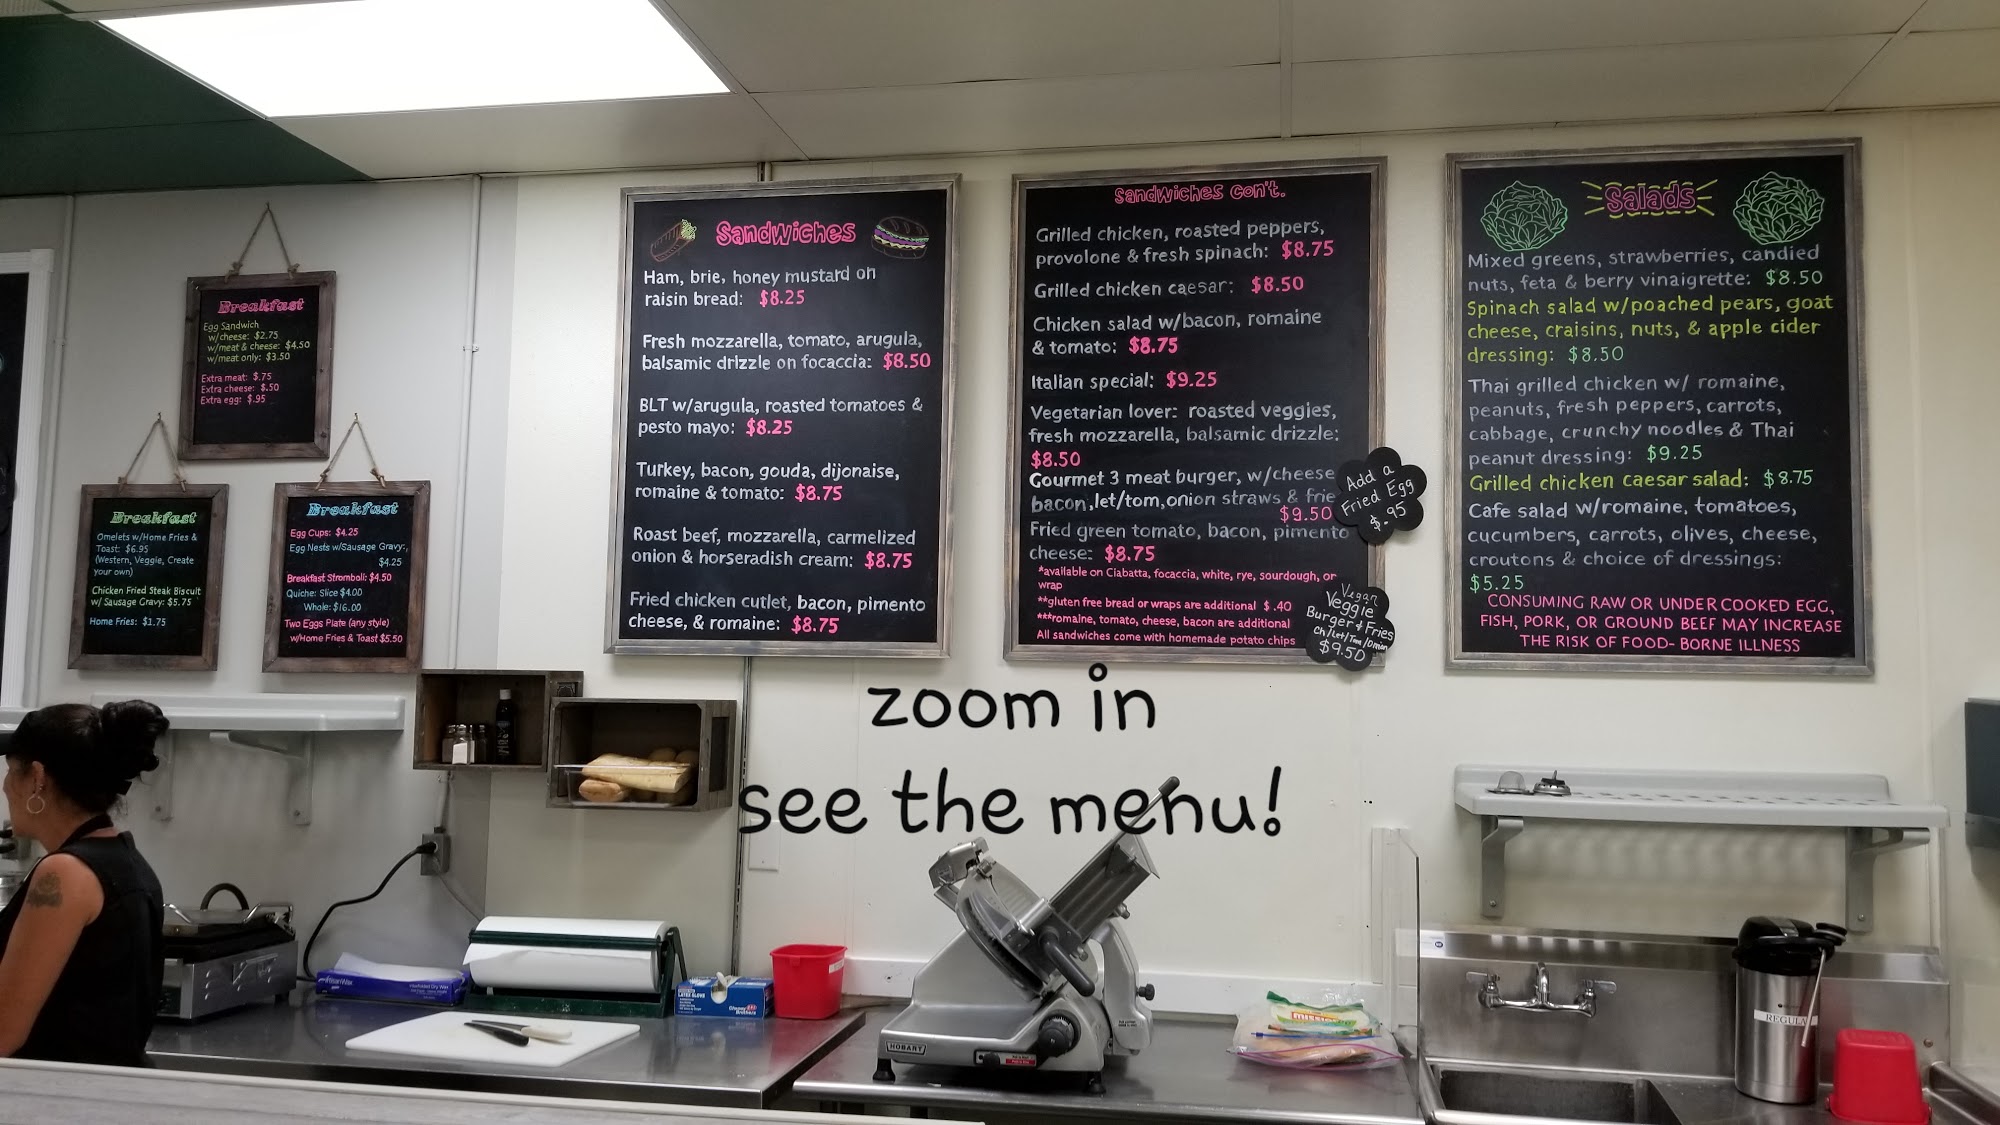 Breakfast
Egg Sandwich
w/cheese: $2.75
w/meat & cheese: $4.50
w/meat only: $3.50
Extra meat: $.75
Extra cheese: $.50
Extra egg: $.95
Breakfast
Omelets w/Home Fries &
Toast: $6.95
(Western, Veggie, Create
your own)
Chicken Fried Steak Biscuit
w/ Sausage Gravy: $5.75
Home Fries: $1.75
Breakfast
Egg Cups: $4.25
Egg Nests w/Sausage Gravy:
$4.25
Breakfast Stromboli: $4.50
Quiche: Slice $4.00
Whole: $16.00
Two Eggs Plate (any style)
w/Home Fries & Toast $5.50
Sandwiches
Ham, brie, honey mustard on
raisin bread: $8.25
Fresh mozzarella, tomato, arugula,
balsamic drizzle on focaccia: $8.50
BLT w/arugula, roasted tomatoes &
pesto mayo: $8.25
Turkey, bacon, gouda, dijonaise,
romaine & tomato: $8.75
Roast beef, mozzarella, carmelized
onion & horseradish cream: $8.75
Fried chicken cutlet, bacon, pimento
cheese, & romaine: $8.75
Sandwiches con't.
Grilled chicken, roasted peppers,
provolone & fresh spinach: $8.75
Grilled chicken caesar: $8.50
Chicken salad w/bacon, romaine
& tomato: $8.75
Italian special: $9.25
Vegetarian lover: roasted veggies,
fresh mozzarella, balsamic drizzle:
$8.50
Gourmet 3 meat burger, w/cheese
bacon,let/tom,onion straws & frie
$9.50
Fried green tomato, bacon, pimento
cheese: $8.75
*available on Ciabatta, focaccia, white, rye, sourdough, or
wrap
**gluten free bread or wraps are additional $.40
***romaine, tomato, cheese, bacon are additional
All sandwiches come with homemade potato chips
Add a
Fried Egg
$.95
Vegan
Veggie
Burger & Fries
Ch/Let/Tom/Onion
$9.50
Salads
Mixed greens, strawberries, candied
nuts, feta & berry vinaigrette: $8.50
Spinach salad w/poached pears, goat
cheese, craisins, nuts, & apple cider
dressing: $8.50
Thai grilled chicken w/ romaine,
peanuts, fresh peppers, carrots,
cabbage, crunchy noodles & Thai
peanut dressing: $9.25
Grilled chicken caesar salad: $8.75
Cafe salad w/romaine, tomatoes,
cucumbers, carrots, olives, cheese,
croutons & choice of dressings:
$5.25
CONSUMING RAW OR UNDERCOOKED EGG,
FISH, PORK, OR GROUND BEEF MAY INCREASE
THE RISK OF FOOD-BORNE ILLNESS
zoom in
see the menu!
LATEX GLOVE
HOBART
MISSION
REGULA